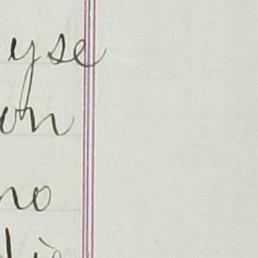 yse
on
no